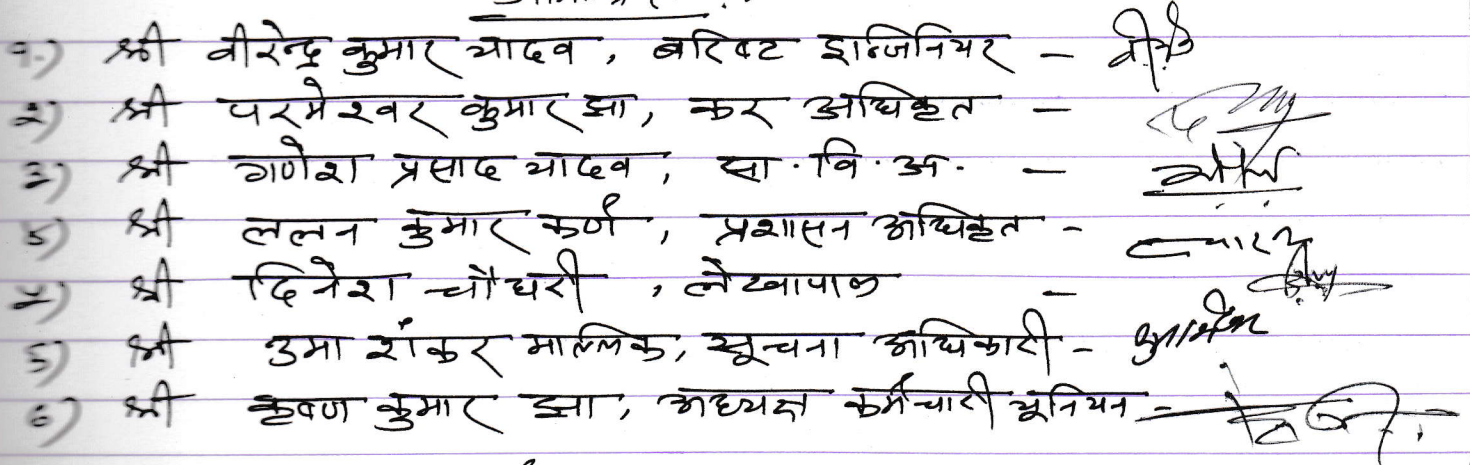 १.) श्री वीरेन्द्र कुमार यादव, वरिष्ट इन्जिनियर -
२) श्री परमेश्वर कुमार झा, कर अधिकृत -
३) श्री गणेश प्रसाद यादव, सा. वि. अ. -
४) श्री ललन कुमार कर्ण, प्रशासन अधिकृत -
५) श्री दिनेश चौधरी, लेखापाल -
६) श्री उमा शंकर मल्लिक, सूचना अधिकारी -
७) श्री कृष्ण कुमार झा, अध्यक्ष कर्मचारी यूनियन -